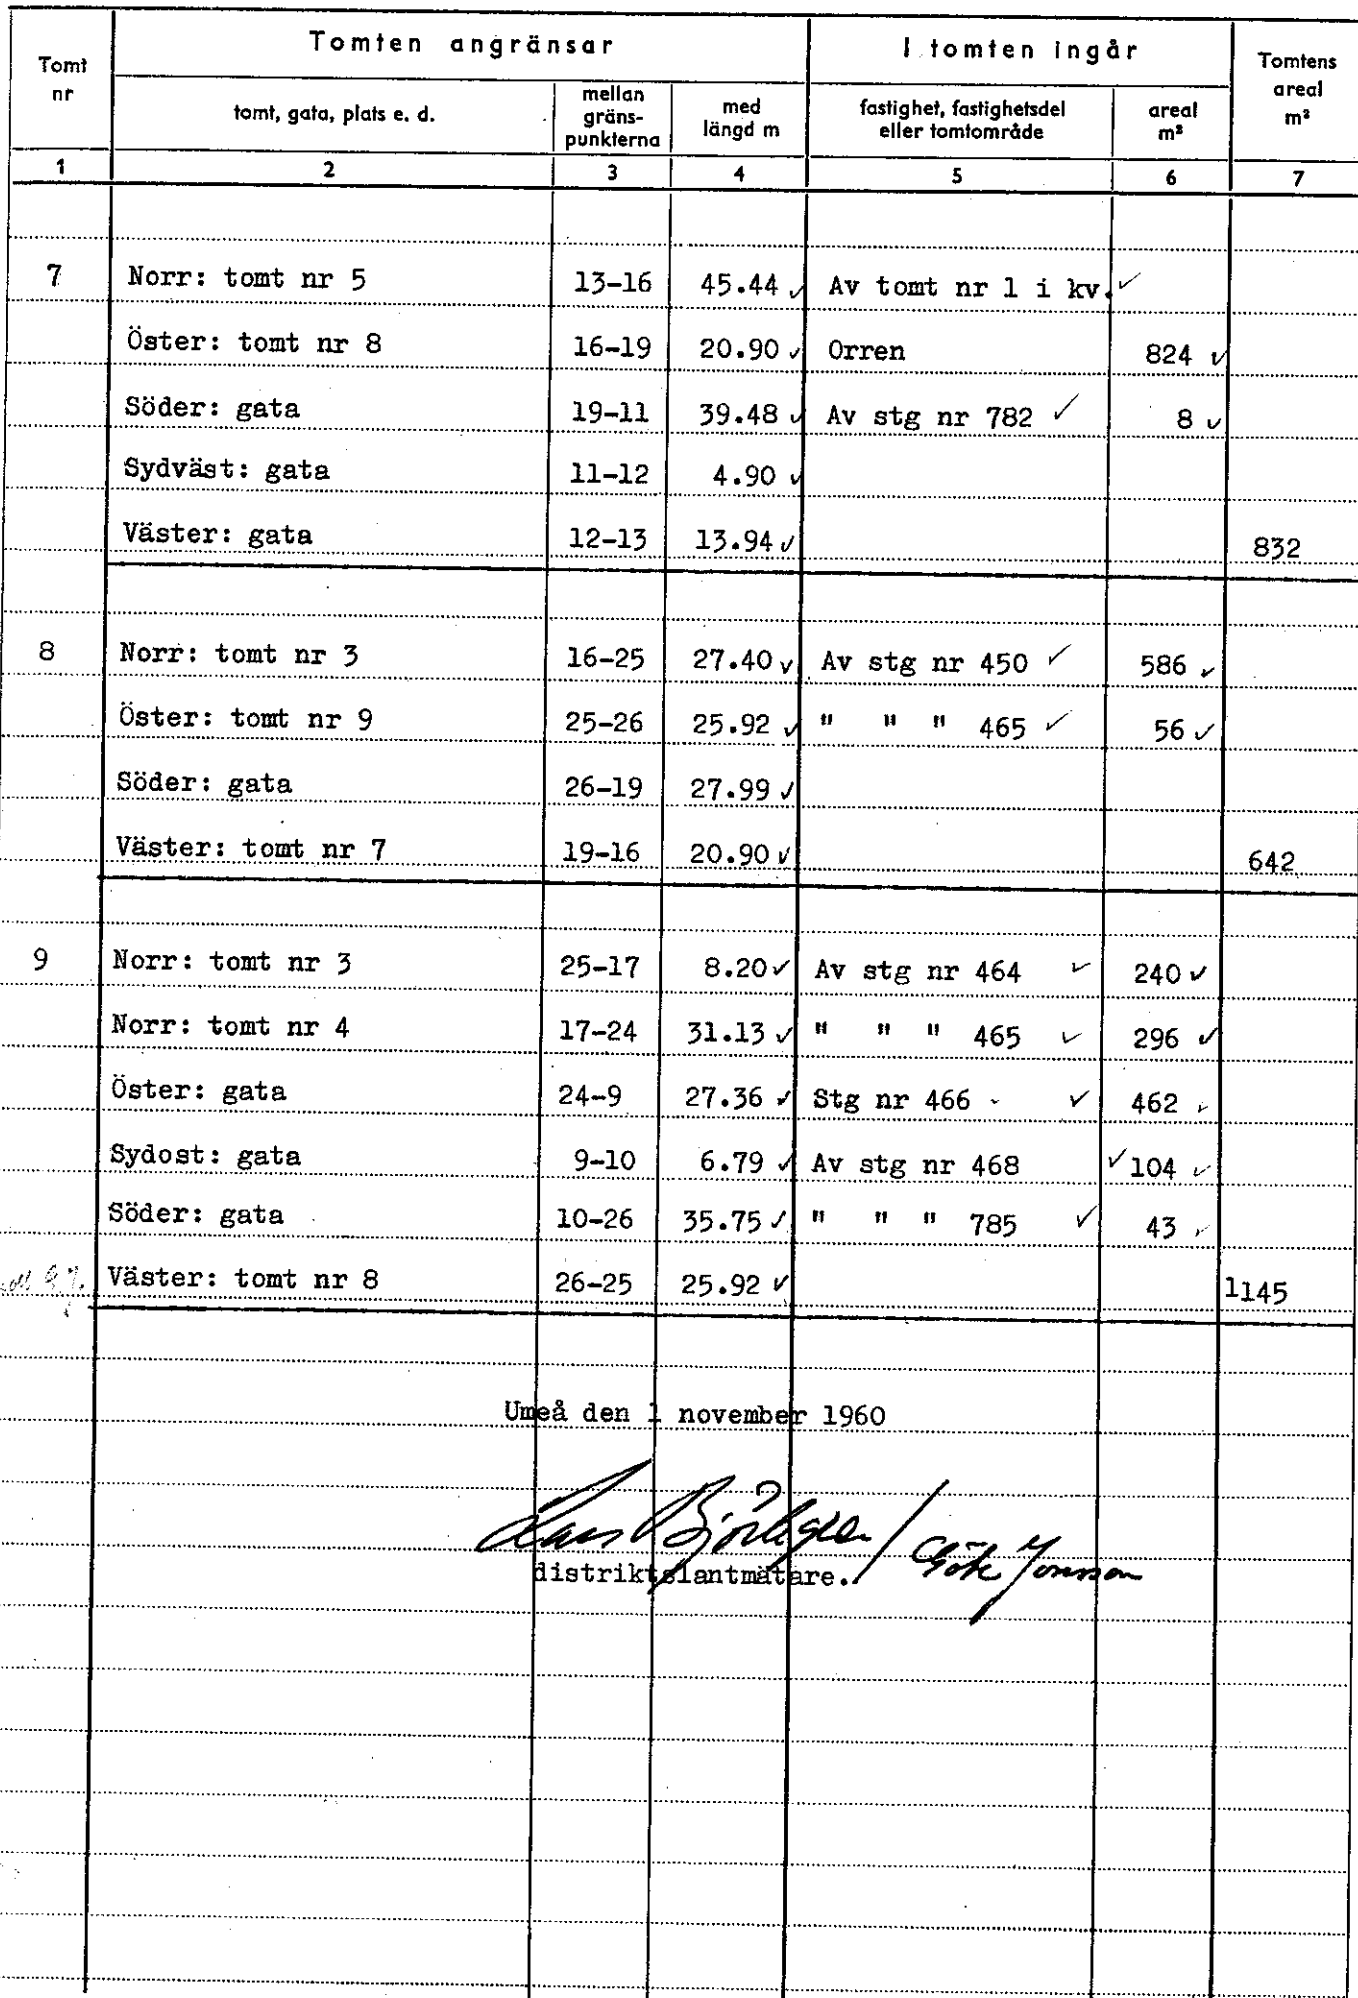 Tomt nr | Tomten angränsar | I tomten ingår | Tomtens areal m²
tomt, gata, plats e. d. | mellan gräns-punkterna | med längd m | fastighet, fastighetsdel eller tomtområde | areal m²
1 | 2 | 3 | 4 | 5 | 6 | 7
7 | Norr: tomt nr 5 | 13-16 | 45.44 ✓ | Av tomt nr 1 i kv. ✓
Öster: tomt nr 8 | 16-19 | 20.90 ✓ | Orren | 824 ✓
Söder: gata | 19-11 | 39.48 ✓ | Av stg nr 782 ✓ | 8 ✓
Sydväst: gata | 11-12 | 4.90 ✓
Väster: gata | 12-13 | 13.94 ✓ | 832
8 | Norr: tomt nr 3 | 16-25 | 27.40 ✓ | Av stg nr 450 ✓ | 586 ✓
Öster: tomt nr 9 | 25-26 | 25.92 ✓ | " " " 465 ✓ | 56 ✓
Söder: gata | 26-19 | 27.99 ✓
Väster: tomt nr 7 | 19-16 | 20.90 ✓ | 642
9 | Norr: tomt nr 3 | 25-17 | 8.20 ✓ | Av stg nr 464 ✓ | 240 ✓
Norr: tomt nr 4 | 17-24 | 31.13 ✓ | " " " 465 ✓ | 296 ✓
Öster: gata | 24-9 | 27.36 ✓ | Stg nr 466 ✓ | 462 ✓
Sydost: gata | 9-10 | 6.79 ✓ | Av stg nr 468 ✓ | 104 ✓
Söder: gata | 10-26 | 35.75 ✓ | " " " 785 ✓ | 43 ✓
Väster: tomt nr 8 | 26-25 | 25.92 ✓ | 1145
Umeå den 1 november 1960
/ Göte Jonsson
distriktslantmätare.